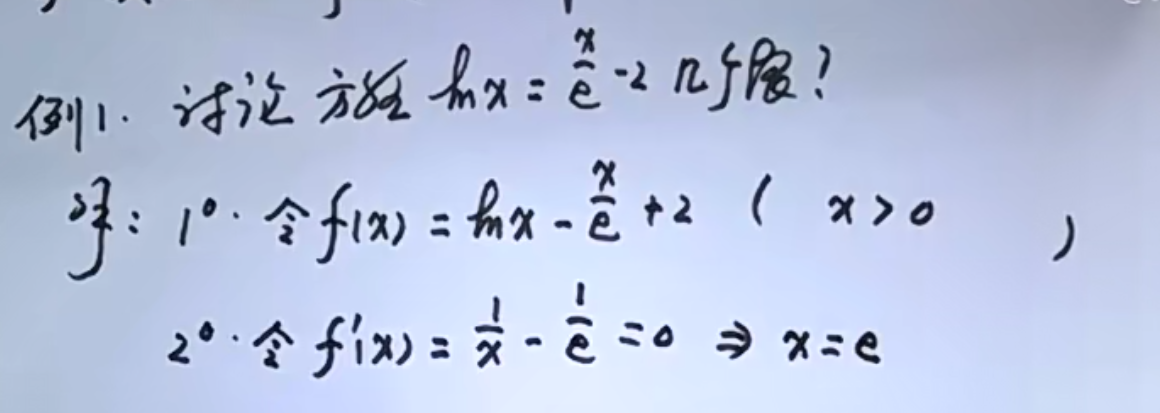 例1. 讨论方程 ln x = x/e - 2 几个根?
解: 1°. 令 f(x) = ln x - x/e + 2 ( x > 0 )
2°. 令 f'(x) = 1/x - 1/e = 0 ⇒ x = e